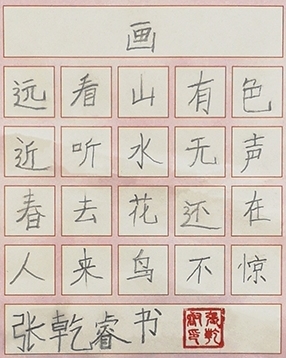 画
远看山有色
近听水无声
春去花还在
人来鸟不惊
张乾睿书